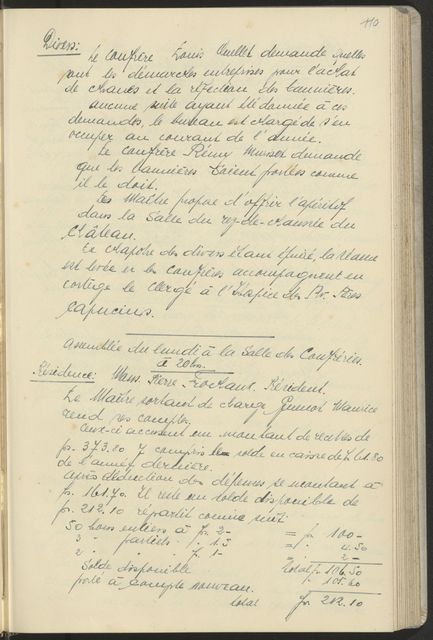 110
Divers:
Le confrère Louis Quillet demande quelles
sont les démarches entreprises pour l'achat
de chances et la réfection des bannières.
aucune suite ayant été donnée à ces
demandes, le bureau est chargé de s'en
occuper au courant de l'année.
Le confrère Rémy demande
que les bannières soient portées comme
il le doit.
Les Maître propose d'offrir l'apéritif
dans la Salle du rez-de-chaussée du
Château.
Le chapitre des divers étant épuisé, la séance
est levée et les confrères accompagnent en
cortège le Clergé à l'Hospice des Rv. Pères
Capucins.
Assemblée du lundi à la Salle des Confréries.
à 20 hrs.
Présidence: Mons. Pierre Président.
Le Maître sortant de charge Maurice
rend ses comptes.
Ceux-ci accusent un montant de recettes de
frs. 373.80 y compris le solde en caisse de
de l'année dernière.
après déduction des dépenses se montant à
frs. 161.70. Il reste un solde disponible de
frs. 212.10 répartit comme suit:
50 bons entiers à fr. 2.- = fr. 100-
3 " partiels " 1.5 = " 4.50
2 " " fr. 1- = " 2-
total fr. 106.50
Solde disponible
porté à compte nouveau. " 105.60
total fr. 212.10